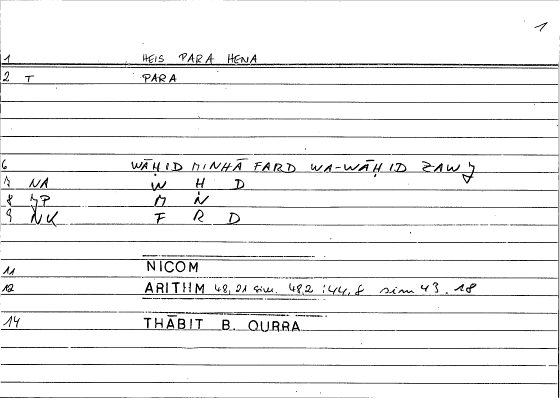 1
1 HEIS PARA HENA
2 T PARA
6 WĀḤID MINHĀ FARD WA-WĀḤID ZAWJ
7 NA W Ḥ D
8 JP M N
9 NK F R D
11 NICOM
12 ARITHM 48,21 sim. 48,2 : 44,8 sim 43.18
14 THĀBIT B. QURRA